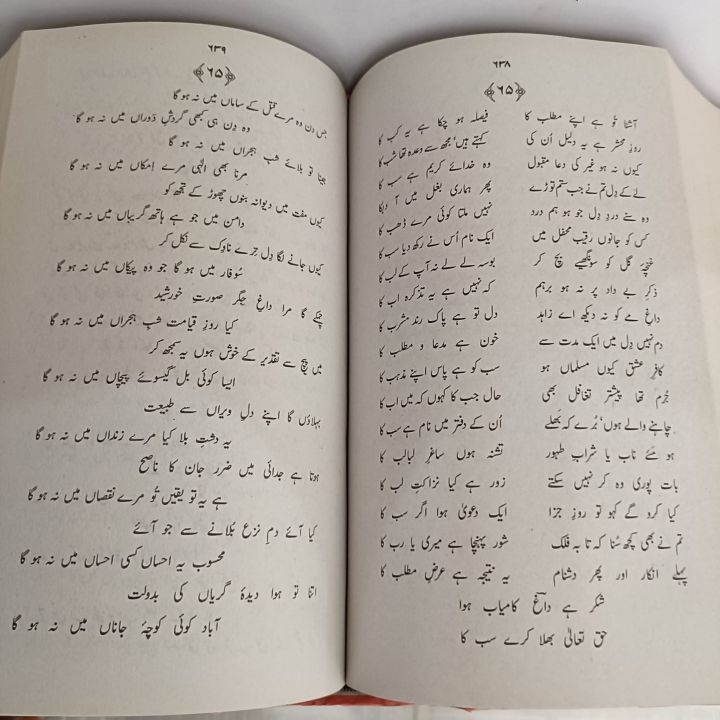 ۶۳۸
﴿۶۵﴾
آشنا تُو ہے اپنے مطلب کا فیصلہ ہو چکا ہے یہ کب کا
روزِ محشر ہے یہ دلیل اُن کی کہتے ہیں، مجھ سے وعدہ تھا شب کا
کیوں نہ ہو غیر کی دعا مقبول وہ خدائے کریم ہے سب کا
لے کے دِل تم نے جب ستم توڑے پھر ہماری بغل میں آ دبکا
وہ سنے دردِ دِل جو ہو ہم درد نہیں ملتا کوئی مرے ڈھب کا
کس کو جانوں رقیب محفل میں ایک نام اُس نے رکھ دیا سب کا
غنچۂ گل کو سونگھیے بچ کر بوسہ لے لے نہ آپ کے لب کا
ذکرِ بے داد پر نہ ہو برہم کہ نہیں ہے یہ تذکرہ اب کا
داغِ مے کو نہ دیکھ اے زاہد دل تو ہے پاک رند مشرب کا
دم نہیں دِل میں ایک مدت سے خون ہے مدعا و مطلب کا
کافرِ عشق کیوں مسلماں ہو سب کو ہے پاس اپنے مذہب کا
جُرم تھا پیشتر تغافل بھی حال جب کا کہوں کہ میں اب کا
چاہنے والے ہوں، بُرے کہ بَھلے اُن کے دفتر میں نام ہے سب کا
ہو مئے ناب یا شرابِ طہور تشنہ ہوں ساغرِ لبالب کا
بات پوری وہ کر نہیں سکتے زور ہے کیا نزاکتِ لب کا
کیا کرو گے کہو تو روزِ جزا ایک دعویٰ ہوا اگر سب کا
تم نے بھی کچھ سُنا کہ تا بہ فلک شور پہنچا ہے میری یا رب کا
پہلے انکار اور پھر دشنام یہ نتیجہ ہے عرضِ مطلب کا
شکر ہے داغؔ کامیاب ہوا
حق تعالیٰ بھلا کرے سب کا
۶۳۹
﴿۶۵﴾
جس دن وہ مرے قتل کے ساماں میں نہ ہو گا
وہ دِن ہی کبھی گردشِ دَوراں میں نہ ہو گا
جینا تو بلائے شبِ ہجراں میں نہ ہو گا
مرنا بھی الٰہی مرے اِمکاں میں نہ ہو گا
کیوں مفت میں دیوانہ بنوں چھوڑ کے تجھ کو
دامن میں جو ہے ہاتھ گریباں میں نہ ہو گا
کیوں جانے لگا دِل ترے ناوک سے نکل کر
سُوفار میں ہو گا جو وہ پیکاں میں نہ ہو گا
چمکے گا مرا داغِ جگر صورتِ خورشید
کیا روزِ قیامت شبِ ہجراں میں نہ ہو گا
میں پیچ سے تقدیر کے خوش ہوں یہ سمجھ کر
ایسا کوئی بل گیسوئے پیچاں میں نہ ہو گا
بہلاؤں گا اپنے دلِ ویراں سے طبیعت
یہ دشتِ بلا کیا مرے زنداں میں نہ ہو گا
ہوتا ہے جدائی میں ضرر جان کا ناصح
ہے یہ تو یقیں تُو مرے نقصاں میں نہ ہو گا
کیا آئے دمِ نزع بُلانے سے جو آئے
محسوب یہ احساں کسی احساں میں نہ ہو گا
اتنا تو ہوا دیدۂ گریاں کی بدولت
آباد کوئی کوچۂ جاناں میں نہ ہو گا